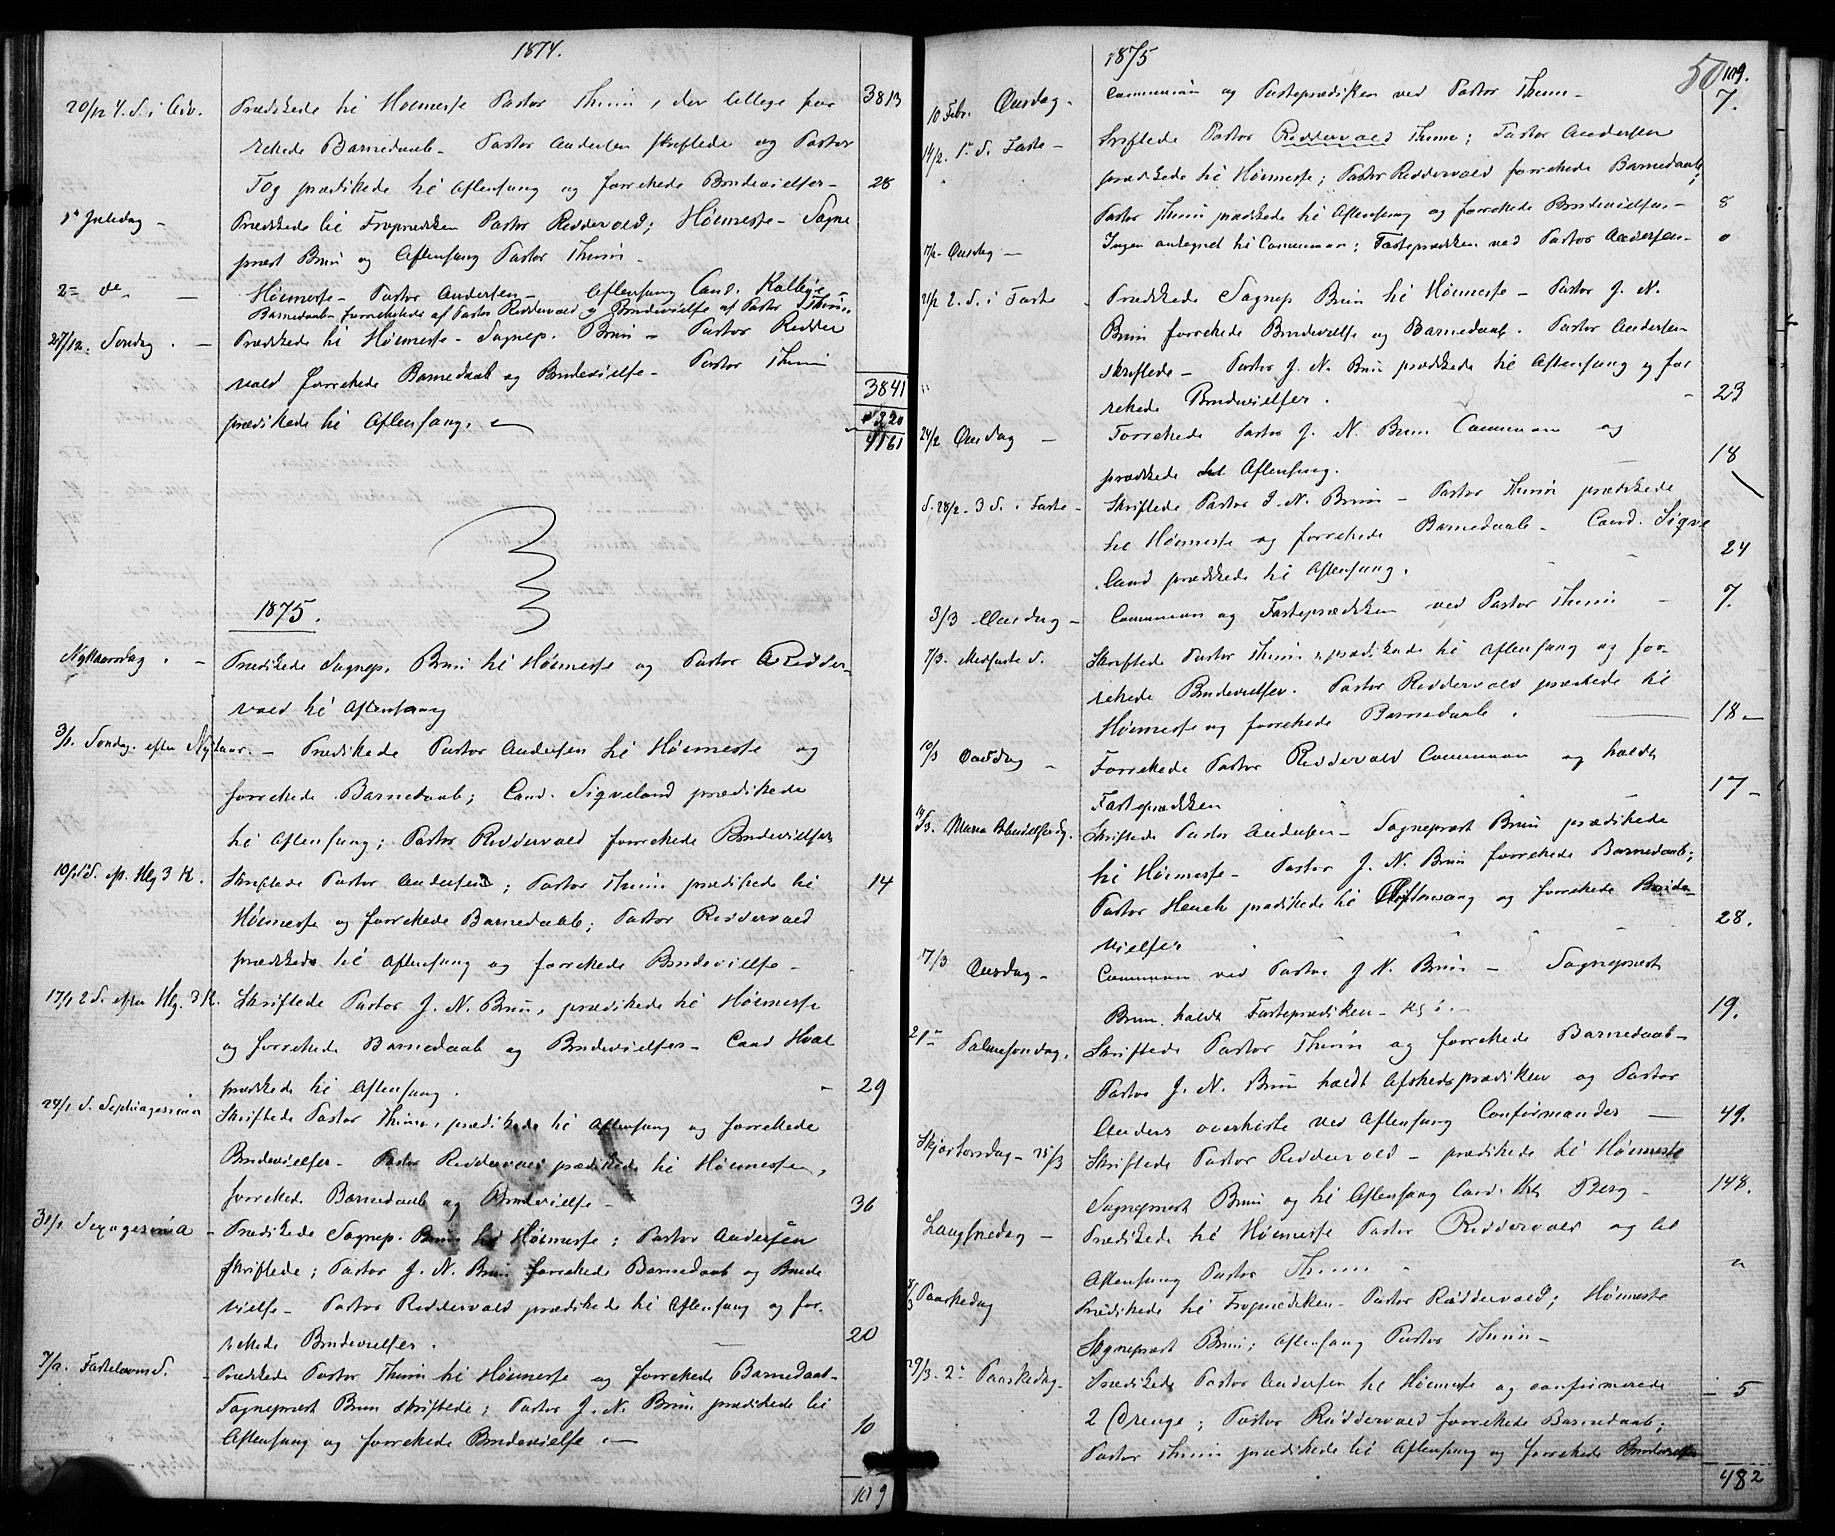 1874.
20/12 4. S. i Adv. Prædikede til Høimesse Pastor Thurm, der tillige for 3813
rettede Barnedaab. Pastor Andersen skriftede og Pastor
Tog prædikede til Aftensang og forrettede Brudevielser - 28
1ste Juledag - Prædikede til Froprædiken Pastor Riddervold; Høimesse - Sogne
præst Brun og Aftensang Pastor Thurm.
2den do - Høimesse - Pastor Andersen - Aftensang Cand. Kolbye -
Barnedaab forrettedes af Pastor Riddervold og Brudevielse af Pastor Thurm.
27/12. Søndag. - Prædikede til Høimesse - Sognep. Brun - Pastor Ridder
vold forrettede Barnedaab og Brudevielse - Pastor Thurm 3841
prædikede til Aftensang. 320
4161
1875.
Nytaarsdag. - Prædikede Sognep. Brun til Høimesse og Pastor Ridder-
vold til Aftensang
3/1. Søndag efter Nytaar. - Prædikede Pastor Andersen til Høimesse og
forrettede Barnedaab; Cand. Sigveland prædikede
til Aftensang; Pastor Riddervold forrettede Brudevielser
10/1 1 S. ep. Hlg 3 K. Skriftede Pastor Andersen; Pastor Thurm prædikede til 14
Høimesse og forrettede Barnedaab; Pastor Riddervold
prædikede til Aftensang og forrettede Brudevielse -
17/1 2 S. efter Hlg. 3 K. Skriftede Pastor J. N. Brun, prædikede til Høimesse
og forrettede Barnedaab og Brudevielser - Cand Hval
prædikede til Aftensang. - 29
24/1 S. Septuagesima Skriftede Pastor Thurm, prædikede til Aftensang og forrettede
Brudevielser - Pastor Riddervold prædikede til Høimesse,
forrettede Barnedaab og Brudevielse - 36
31/1 Sexagesima - Prædikede Sognep. Brun til Høimesse; Pastor Andersen
skriftede; Pastor J. N. Brun forrettede Barnedaab og Brude
vielse - Pastor Riddervold prædikede til Aftensang og for-
rettede Brudevielser. - 20
7/2. Fastelavns S. - Prædikede Pastor Thurm til Høimesse og forrettede Barnedaab -
Sognepræst Brun skriftede; Pastor J. N. Brun prædikede til
Aftensang og forrettede Brudevielse. - 10
109
1875
50 109.
10 Febr. Onsdag - Communion og Fasteprædiken ved Pastor Thurm - 7.
14/2. 1ste S. Faste - Skriftede Pastor Riddervold Thurm; Pastor Andersen
prædikede til Høimesse; Pastor Riddervold forrettede Barnedaab;
Pastor Thurm prædikede til Aftensang og forrettede Brudevielser - 8
17/2. Onsdag - Ingen antegnet til Communion; Fasteprædiken ved Pastor Andersen - 0
21/2 2. S. i Faste - Prædikede Sognep Brun til Høimesse - Pastor J. N.
Brun forrettede Brudevielse og Barnedaab. Pastor Andersen
skriftede - Pastor J. N. Brun prædikede til Aftensang og for
" rettede Brudevielser. - 23
24/2 Onsdag - Forrettede Pastor J. N. Brun Communion og
prædikede til Aftensang. 18
S. 28/2 - 3 S. i Faste - Skriftede Pastor J. N. Brun - Pastor Thurm prædikede
til Høimesse og forrettede Barnedaab - Cand. Sigve
land prædikede til Aftensang. - 24
3/3 Onsdag - Communion og Fasteprædiken ved Pastor Thurm - 7.
7/3. Midfaste S. Skriftede Pastor Thurm, prædikede til Aftensang og for-
rettede Brudevielser. Pastor Riddervold prædikede til
Høimesse og forrettede Barnedaab. - 18 -
10/3 Onsdag - Forrettede Pastor Riddervold Communion og holdt
Fasteprædiken 17 -
14/3. Maria Bebudelsesdg. Skriftede Pastor Andersen - Sognepræst Brun prædikede
til Høimesse - Pastor J. N. Brun forrettede Barnedaab;
Pastor Heuch prædikede til Aftensang og forrettede Brude-
vielser 28.
17/3 Onsdag - Communion ved Pastor J. N. Brun - Sognepræst
Brun holdt Fasteprædiken - 19.
21de Palmesøndag. Skriftede Pastor Thurm og forrettede Barnedaab -
Pastor J. N. Brun holdt Afskedsprædiken og Pastor
Anders overhørte ved Aftensang Confirmander - 49.
Skjærtorsdag - 25/3 Skriftede Pastor Riddervold - prædikede til Høimesse
Sognepræst Brun og til Aftensang Cand. Berg - 148.
Langfredag - Prædikede til Høimesse Pastor Riddervold og til
Aftensang Pastor Thurm. "
28/3 Paaskedag Prædikede til Froprædiken - Pastor Riddervold; Høimesse
Sognepræst Brun; Aftensang Pastor Thurm -
29/3. 2. Paaskedag - Prædikede Pastor Andersen til Høimesse og confirmerede - 5
2 Drenge; Pastor Riddervold forrettede Barnedaab;
Pastor Thurm prædikede til Aftensang og forrettede Brudevielser
482